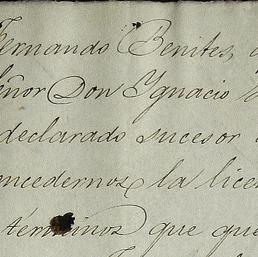 Fernando Benites,
Señor Don Ygnacio
declarado sucesor
concedernos la lice
términos que que